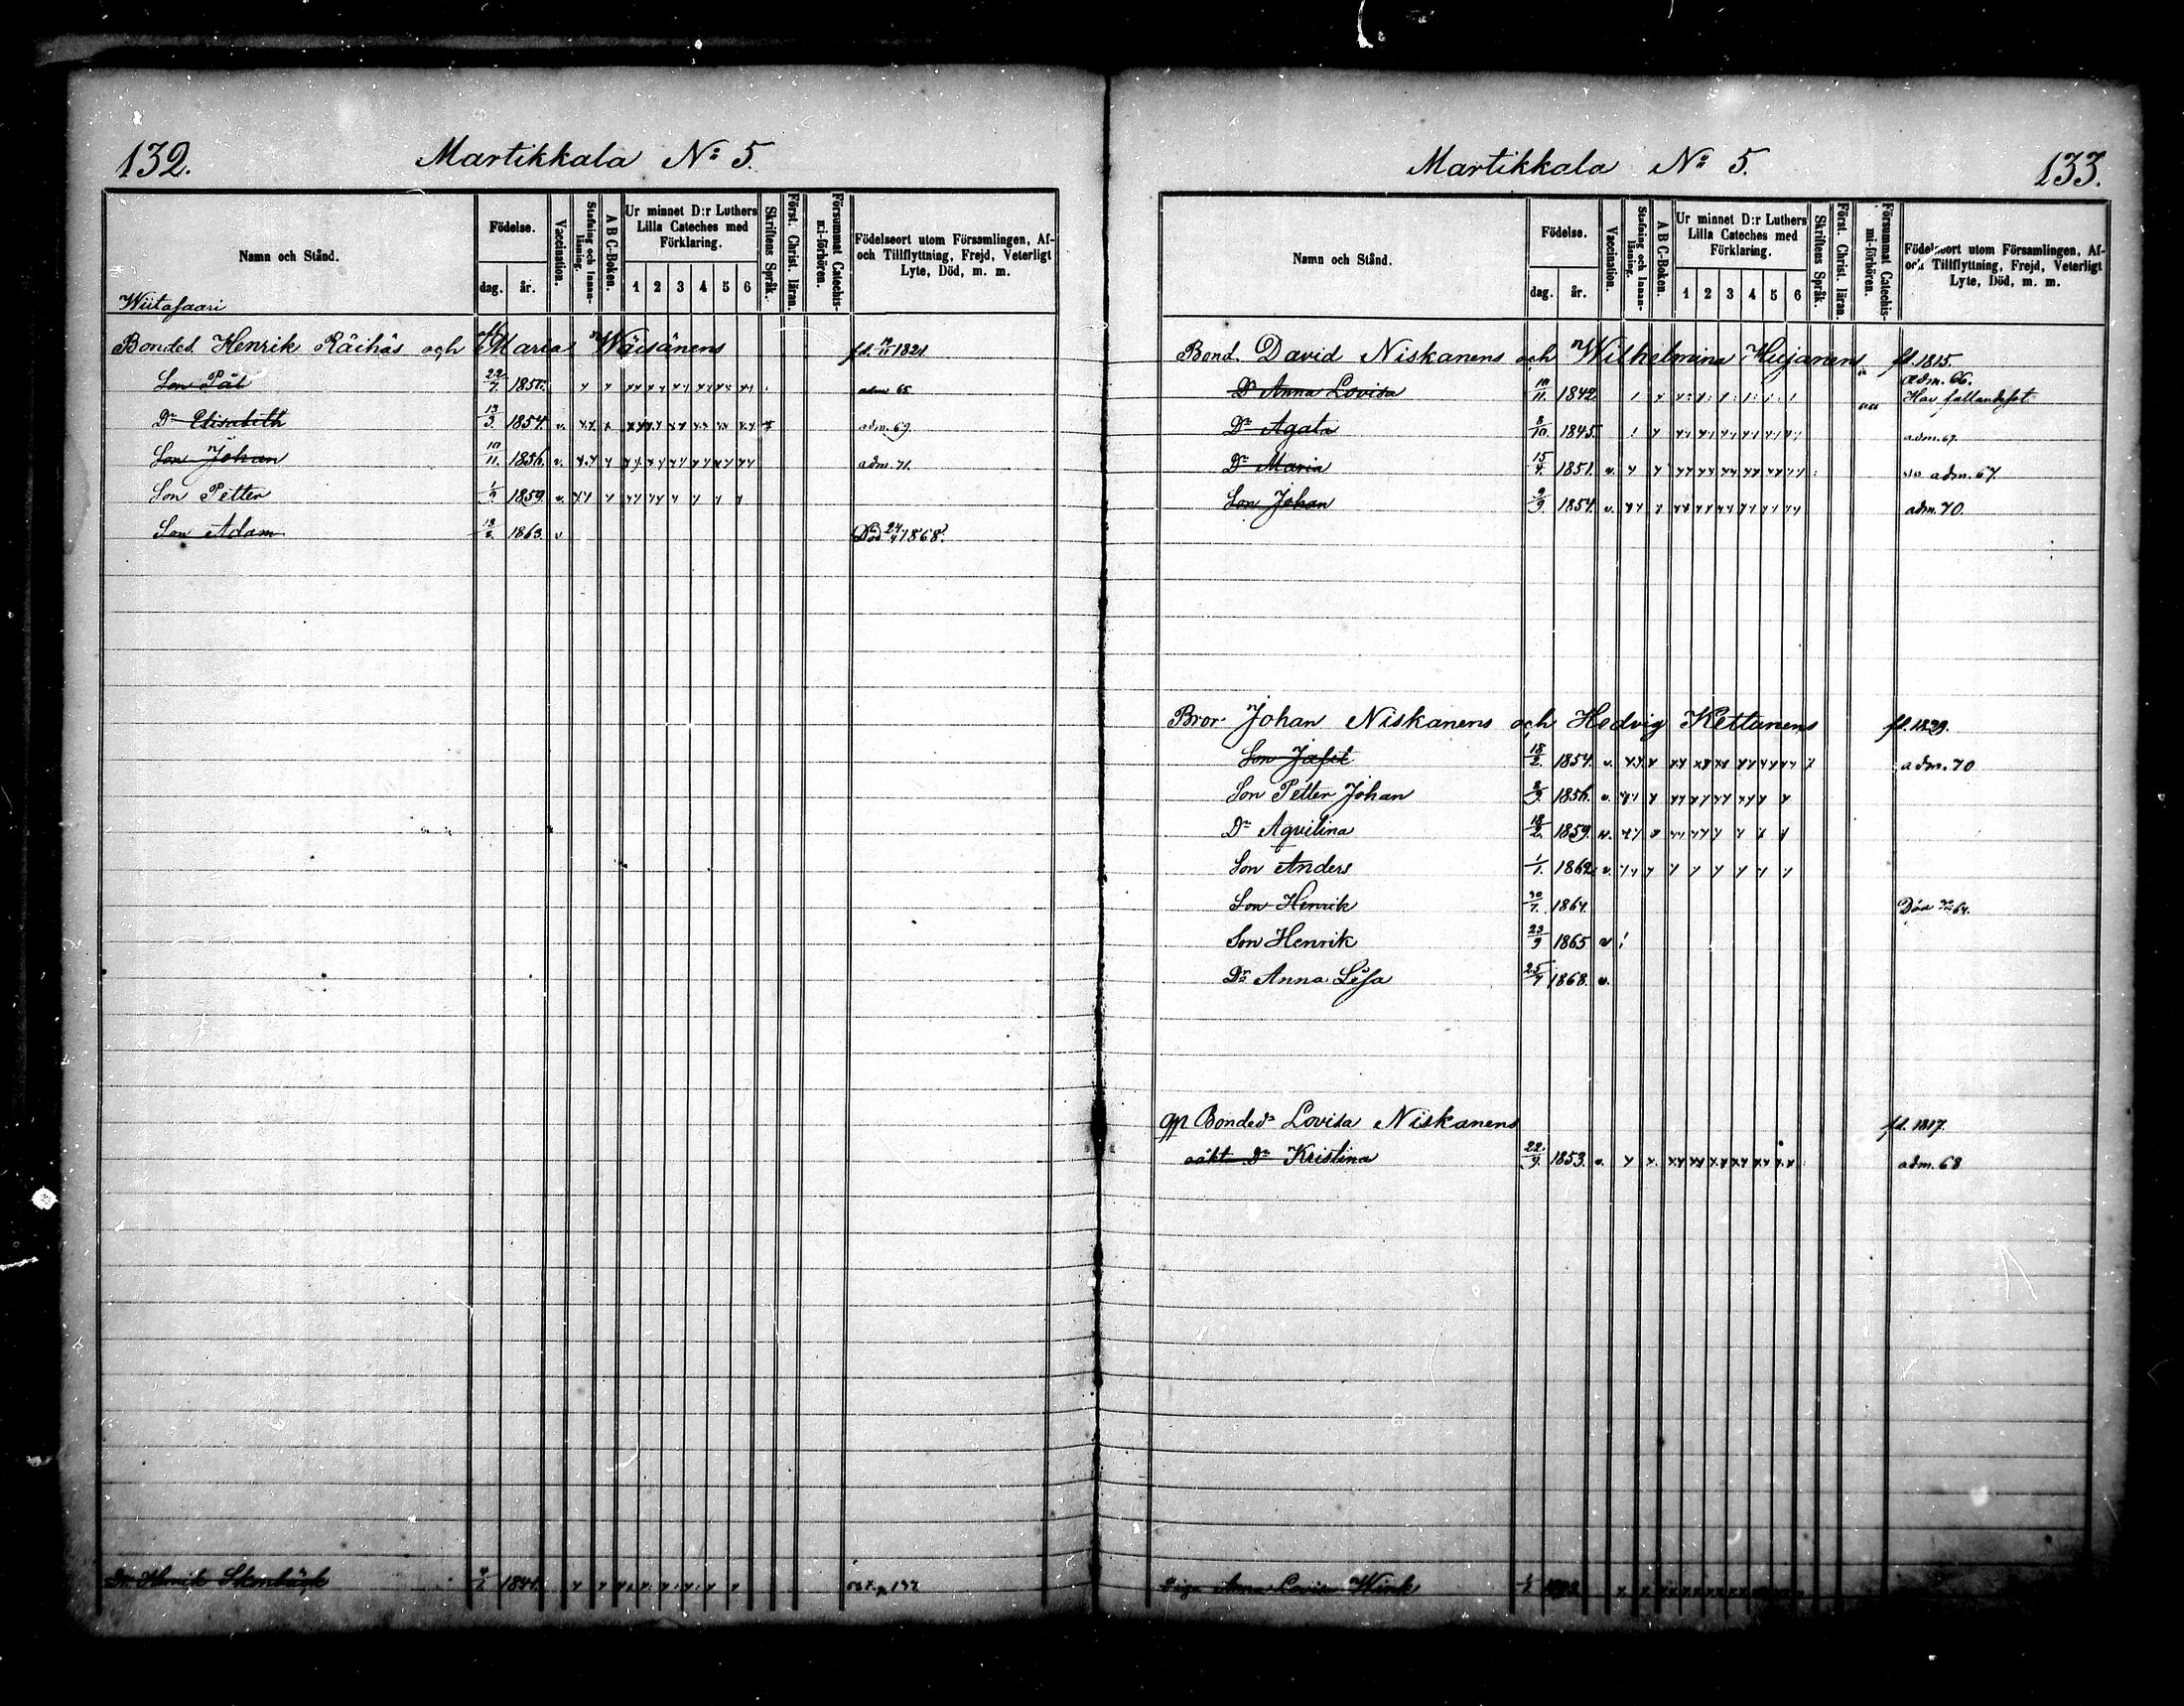 132.
Martikkala No 5.
Namn och Stånd.
Födelse.
dag.
år.
Vaccination.
Stafning och Innanläsning.
A B C-Boken.
Ur minnet D:r Luthers Lilla Cateches med Förklaring.
1 2 3 4 5 6
Skriftens Språk.
Först. Christ. läran.
Försummat Catechismi-förhören.
Födelseort utom Församlingen, Af- och Tillflyttning, Frejd, Veterligt Lyte, Död, m. m.
Wiitasaari
Bonded. Henrik Räihäs och Maria Wäisänens fd. 1821
Son Pål 22/7 1850. adm 65.
Dr Elisabeth 13/3 1854. v. adm. 69.
Son Johan 10/11. 1856. v. adm. 71.
Son Petter 1859. v.
Son Adam 1863. v Död 24/4 1868.
Dr. Henrik Stenbäck 1841. 137.
Martikkala No 5.
133.
Namn och Stånd.
Födelse.
dag.
år.
Vaccination.
Stafning och Innanläsning.
A B C-Boken.
Ur minnet D:r Luthers Lilla Cateches med Förklaring.
1 2 3 4 5 6
Skriftens Språk.
Först. Christ. läran.
Försummat Catechismi-förhören.
Födelseort utom Församlingen, Af- och Tillflyttning, Frejd, Veterligt Lyte, Död, m. m.
Bond. David Niskanens och Wilhelmina Hujanens fd. 1815.
Dr Anna Lovisa 10/11. 1842. adm. 66. Har fallandesot
Dr Agata 8/10 1845. adm. 67.
Dr Maria 15/4 1851. v. adm. 67.
Son Johan 9/9 1854. v. adm. 70.
Bror Johan Niskanens och Hedvig Kettunens fd. 1829.
Son Jafet 18/2. 1854. v. adm. 70
Son Petter Johan 8/9. 1856. v.
Dr Aqvilina 18/2. 1859. v.
Son Anders 1/1. 1862. v.
Son Henrik 1864. Död 64.
Son Henrik 23/9 1865 v
Dr Anna Lisa 25/7 1868. v.
Bonded. Lovisa Niskanens fd. 1817.
oäkt Dr Kristina 22/9. 1853. v. adm. 68
Piga Anna Lovisa Wink